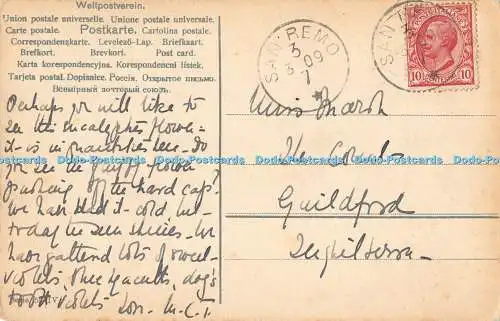 Weltpostverein.
Union postale universelle. Unione postale universale.
Carte postale. Postkarte. Cartolina postale.
Correspondenzkarte. Levelező-Lap. Briefkaart.
Brefkort. Brevkort. Post card.
Karta korespondencyjna. Korespondenční listek.
Tarjeta postal. Dopisnice. Россія. Открытое письмо.
Всемірный почтовый союзъ.
SAN REMO
3
3 09
7
SAN
10 10
Perhaps you will like to
see the eucalyptus flower -
it is in quantities here. Do
you see the fluffy flower
pushing off the hard cap?
We have had it cold but
today the sun shines. We
have gathered lots of sweet
violets, blue hyacinths, dog's
tooth violets Lon. M.C.T.
Miss Marsh
The Court
Guildford
Inghilterra
Dodo-Postcards